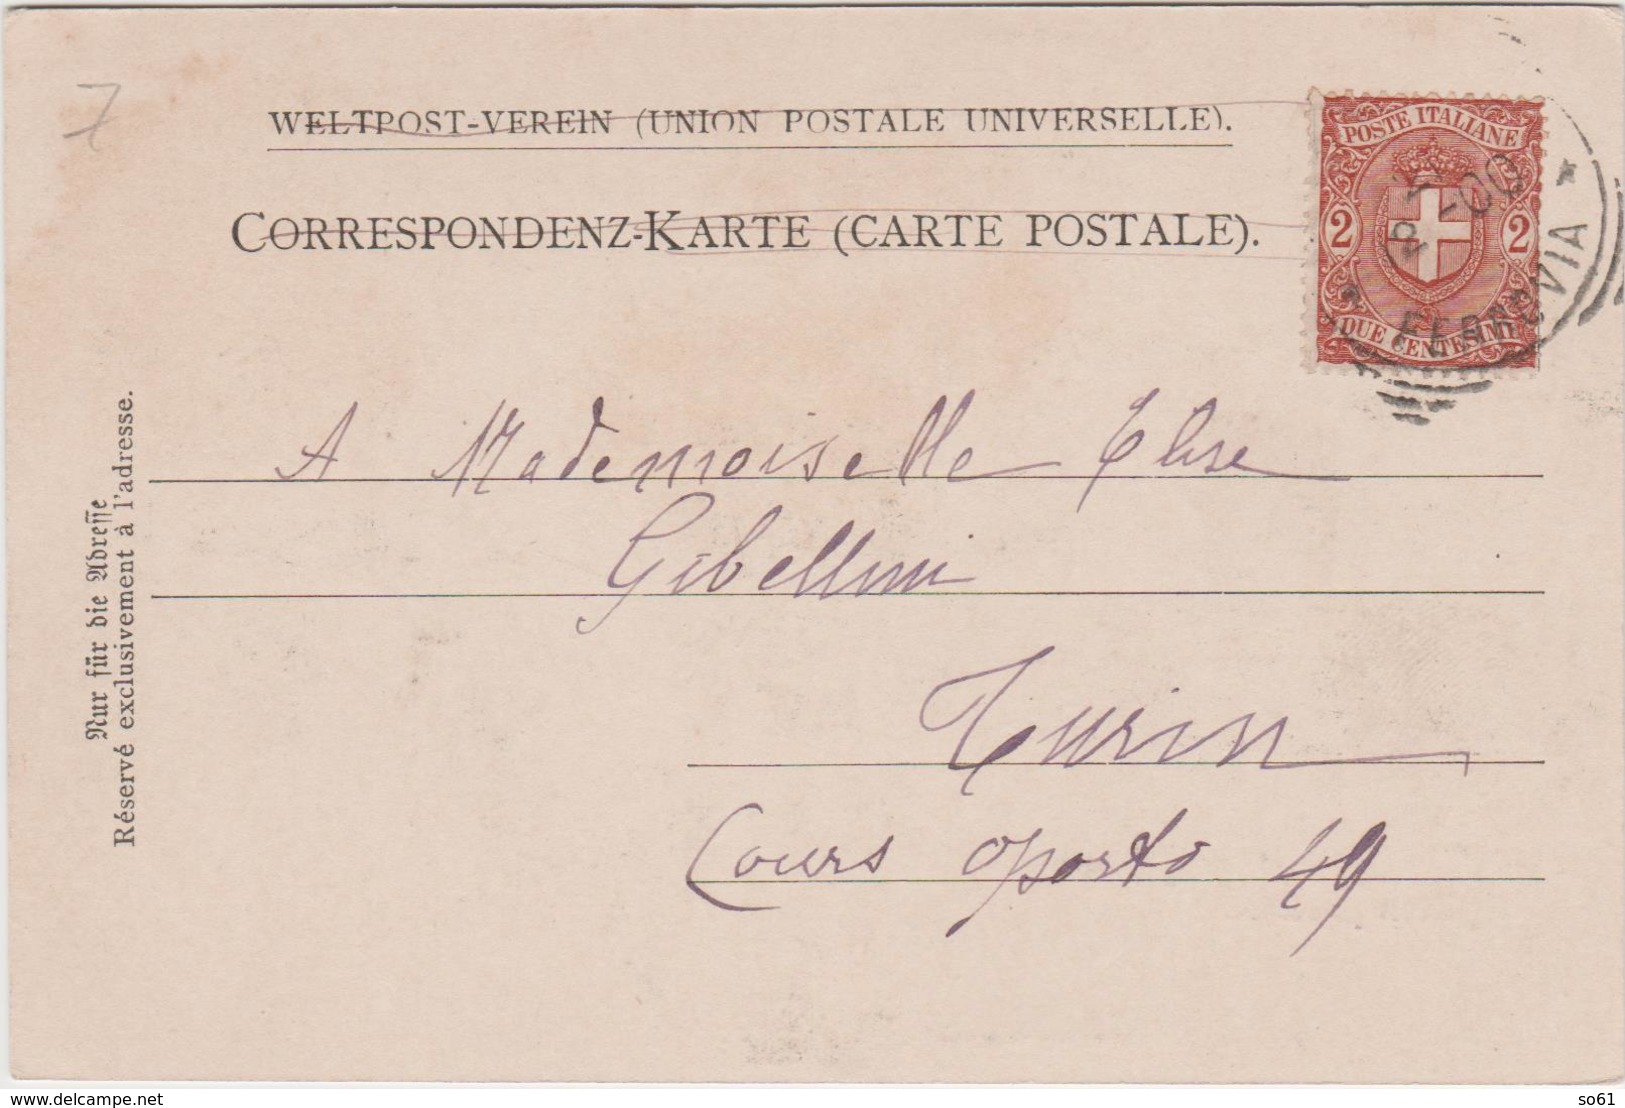 7
WELTPOST-VEREIN (UNION POSTALE UNIVERSELLE).
CORRESPONDENZ-KARTE (CARTE POSTALE).
POSTE ITALIANE
2 2
DUE CENTESIMI
00
FERROVIA *
A Mademoiselle Elise
Gibellini
Turin
Cours Oporto 49
Nur für die Adresse
Réservé exclusivement à l'adresse.
www.delcampe.net
so61